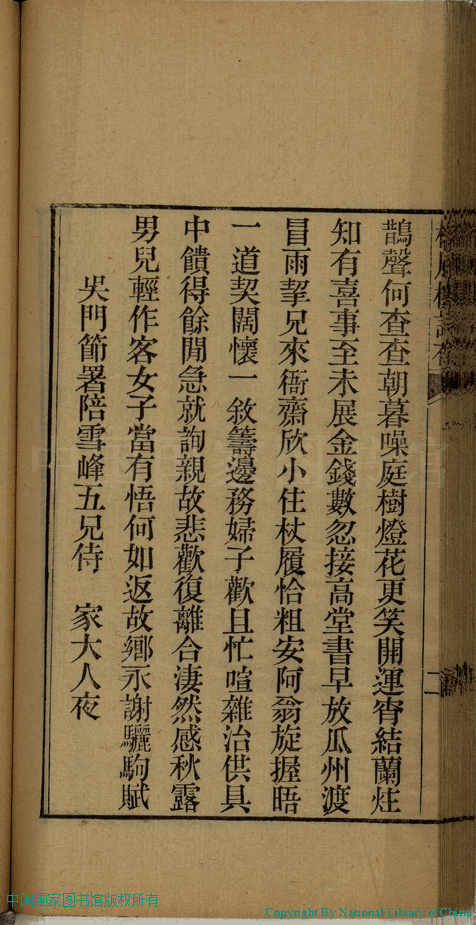 鵲聲何查查朝暮噪庭樹燈花更笑開運宵結蘭炷
知有喜事至未展金錢數忽接高堂書早放瓜州渡
冒雨挈兄來衙齋欣小住杖履恰粗安阿翁旋握晤
一道契闊懷一敘籌邊務婦子歡且忙喧雜治供具
中饋得餘閒急就詢親故悲歡復離合淒然感秋露
男兒輕作客女子當有悟何如返故鄉永謝驪駒賦
吳門節署陪雪峰五兄侍 家大人夜
二
中国国家图书馆版权所有
Copyright By National Library of China